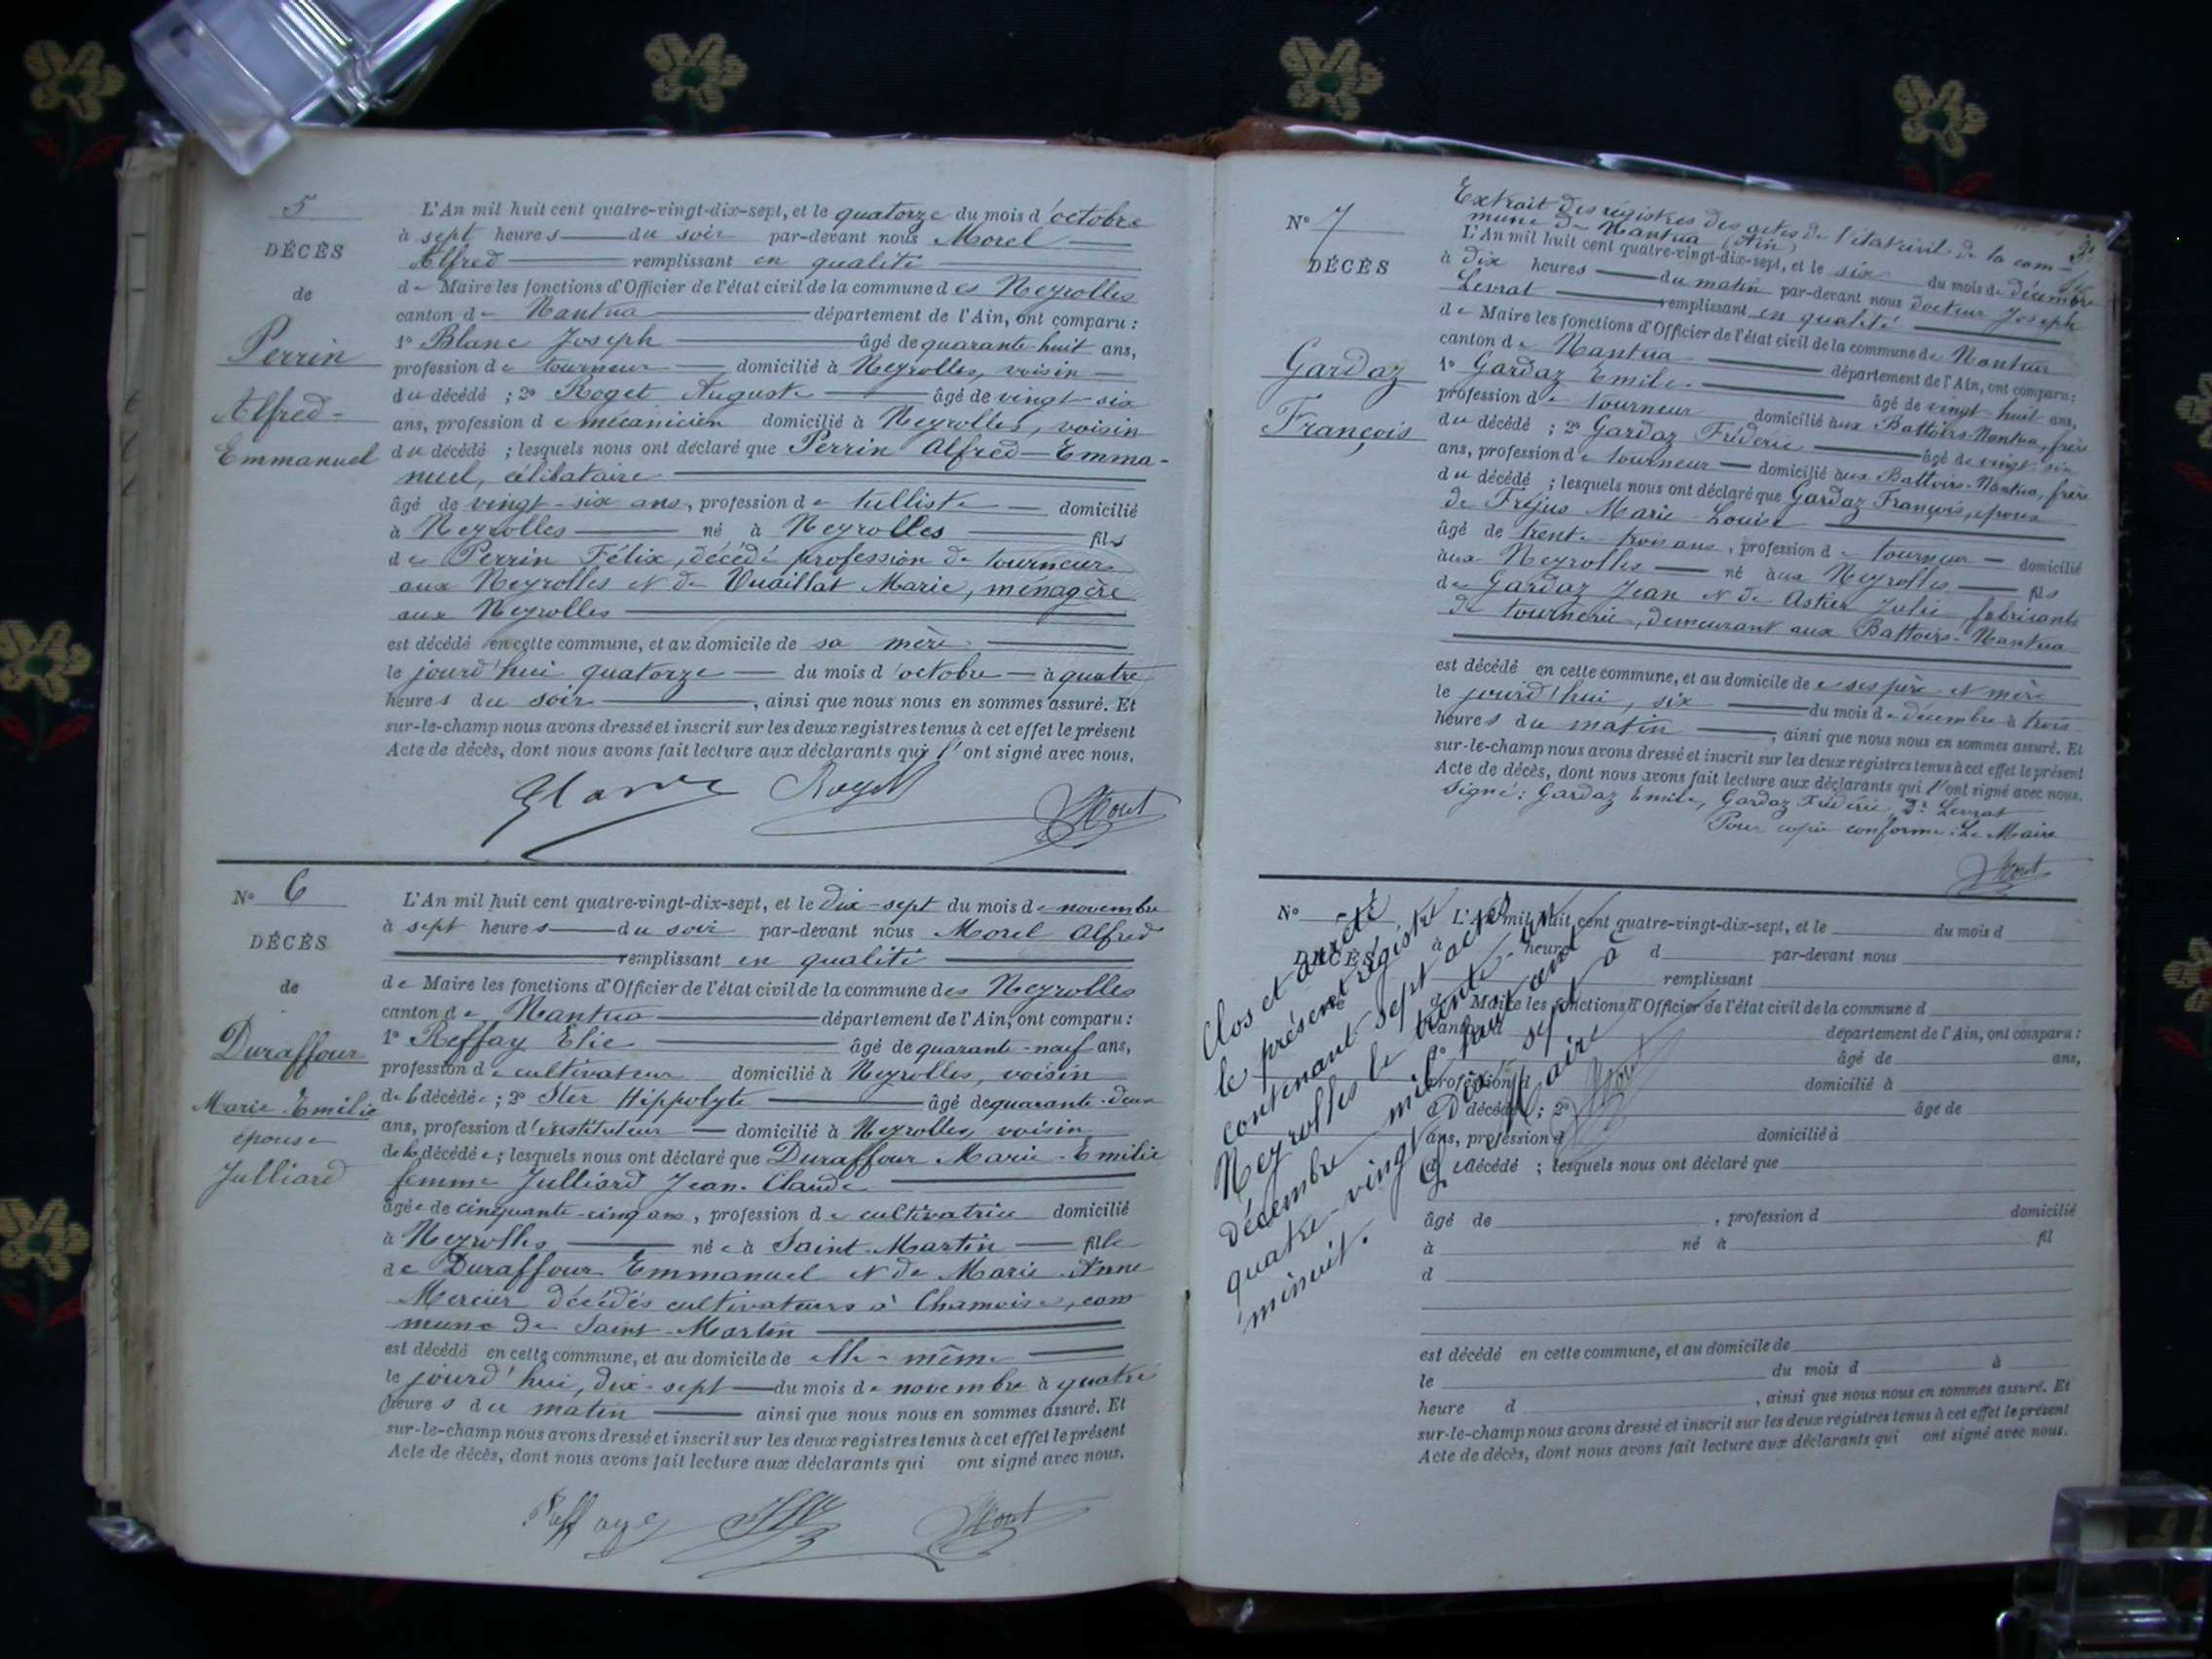 5
DÉCÈS
de
Perrin
Alfred-
Emmanuel
L'An mil huit cent quatre-vingt-dix-sept, et le quatorze du mois d'octobre
à sept heures du soir par-devant nous Morel
Alfred remplissant en qualité
de Maire les fonctions d'Officier de l'état civil de la commune des Neyrolles
canton de Nantua département de l'Ain, ont comparu :
1° Blanc Joseph âgé de quarante-huit ans,
profession de tourneur domicilié à Neyrolles, voisin
du décédé ; 2° Roget Auguste âgé de vingt-six
ans, profession de mécanicien domicilié à Neyrolles, voisin
du décédé ; lesquels nous ont déclaré que Perrin Alfred-Emma-
nuel, célibataire
âgé de vingt-six ans, profession de tulliste domicilié
à Neyrolles né à Neyrolles fils
de Perrin Félix, décédé profession de tourneur
aux Neyrolles et de Vuaillat Marie, ménagère
aux Neyrolles
est décédé en cette commune, et au domicile de sa mère
le jourd'hui quatorze du mois d'octobre à quatre
heures du soir , ainsi que nous nous en sommes assuré. Et
sur-le-champ nous avons dressé et inscrit sur les deux registres tenus à cet effet le présent
Acte de décès, dont nous avons fait lecture aux déclarants qui l'ont signé avec nous.
Roget
N° 6
DÉCÈS
de
Duraffour
Marie-Emilie
épouse
Julliard
L'An mil huit cent quatre-vingt-dix-sept, et le dix-sept du mois de novembre
à sept heures du soir par-devant nous Morel Alfred
remplissant en qualité
de Maire les fonctions d'Officier de l'état civil de la commune des Neyrolles
canton de Nantua département de l'Ain, ont comparu :
1° Reffay Elie âgé de quarante-neuf ans,
profession de cultivateur domicilié à Neyrolles, voisin
de la décédée ; 2° Ster Hippolyte âgé de quarante-deux
ans, profession d'instituteur domicilié à Neyrolles, voisin
de la décédée ; lesquels nous ont déclaré que Duraffour Marie-Emilie
femme Julliard Jean-Claude
âgée de cinquante-cinq ans, profession de cultivatrice domicilié
à Neyrolles née à Saint-Martin fille
de Duraffour Emmanuel et de Marie-Anne
Mercier décédés cultivateurs à Chamoise, com
mune de Saint-Martin
est décédé en cette commune, et au domicile de elle-même
le jourd'hui, dix-sept du mois de novembre à quatre
heures du matin ainsi que nous nous en sommes assuré. Et
sur-le-champ nous avons dressé et inscrit sur les deux registres tenus à cet effet le présent
Acte de décès, dont nous avons fait lecture aux déclarants qui ont signé avec nous.
Reffay
N° 7
DÉCÈS
Gardaz
François
Extrait des régistres des actes de l'état civil de la com-
mune de Nantua (Ain)
L'An mil huit cent quatre-vingt-dix-sept, et le six du mois de décembre
à dix heures du matin par-devant nous docteur Joseph
Levrat remplissant en qualité
de Maire les fonctions d'Officier de l'état civil de la commune de Nantua
canton de Nantua département de l'Ain, ont comparu :
1° Gardaz Emile âgé de vingt-huit ans,
profession de tourneur domicilié aux Battoirs-Nantua, frère
du décédé ; 2° Gardaz Fréderic âgé de vingt-six
ans, profession de tourneur domicilié aux Battoirs-Nantua, frère
du décédé ; lesquels nous ont déclaré que Gardaz François, époux
de Fréjus Marie-Louise
âgé de trente-trois ans, profession de tourneur domicilié
aux Neyrolles né aux Neyrolles fils
de Gardaz Jean et de Astier Julie fabricants
de tournerie, demeurant aux Battoirs-Nantua
est décédé en cette commune, et au domicile de ses père et mère
le jourd'hui, six du mois de décembre à trois
heures du matin , ainsi que nous nous en sommes assuré. Et
sur-le-champ nous avons dressé et inscrit sur les deux registres tenus à cet effet le présent
Acte de décès, dont nous avons fait lecture aux déclarants qui l'ont signé avec nous.
Signé : Gardaz Emile, Gardaz Fréderic, Dr Levrat
Pour copie conforme : Le Maire
N°
DÉCÈS
L'An mil huit cent quatre-vingt-dix-sept, et le du mois d
à heure d par-devant nous
remplissant
d Maire les fonctions d'Officier de l'état civil de la commune d
canton d département de l'Ain, ont comparu :
1° âgé de ans,
profession d domicilié à
d décédé ; 2° âgé de
ans, profession d domicilié à
d décédé ; lesquels nous ont déclaré que
âgé de , profession d domicilié
à né à fil
d
est décédé en cette commune, et au domicile de
le du mois d à
heure d , ainsi que nous nous en sommes assuré. Et
sur-le-champ nous avons dressé et inscrit sur les deux registres tenus à cet effet le présent
Acte de décès, dont nous avons fait lecture aux déclarants qui ont signé avec nous.
Clos et arrêté
le présent régistre
contenant sept actes
Neyrolles le trente-un
décembre mil huit cent
quatre-vingt dix sept à
minuit. Le Maire